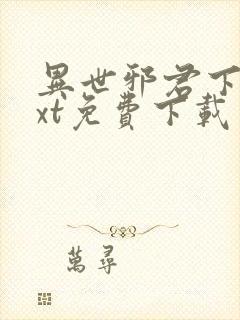 異世邪君下
xt免費下載
萬尋